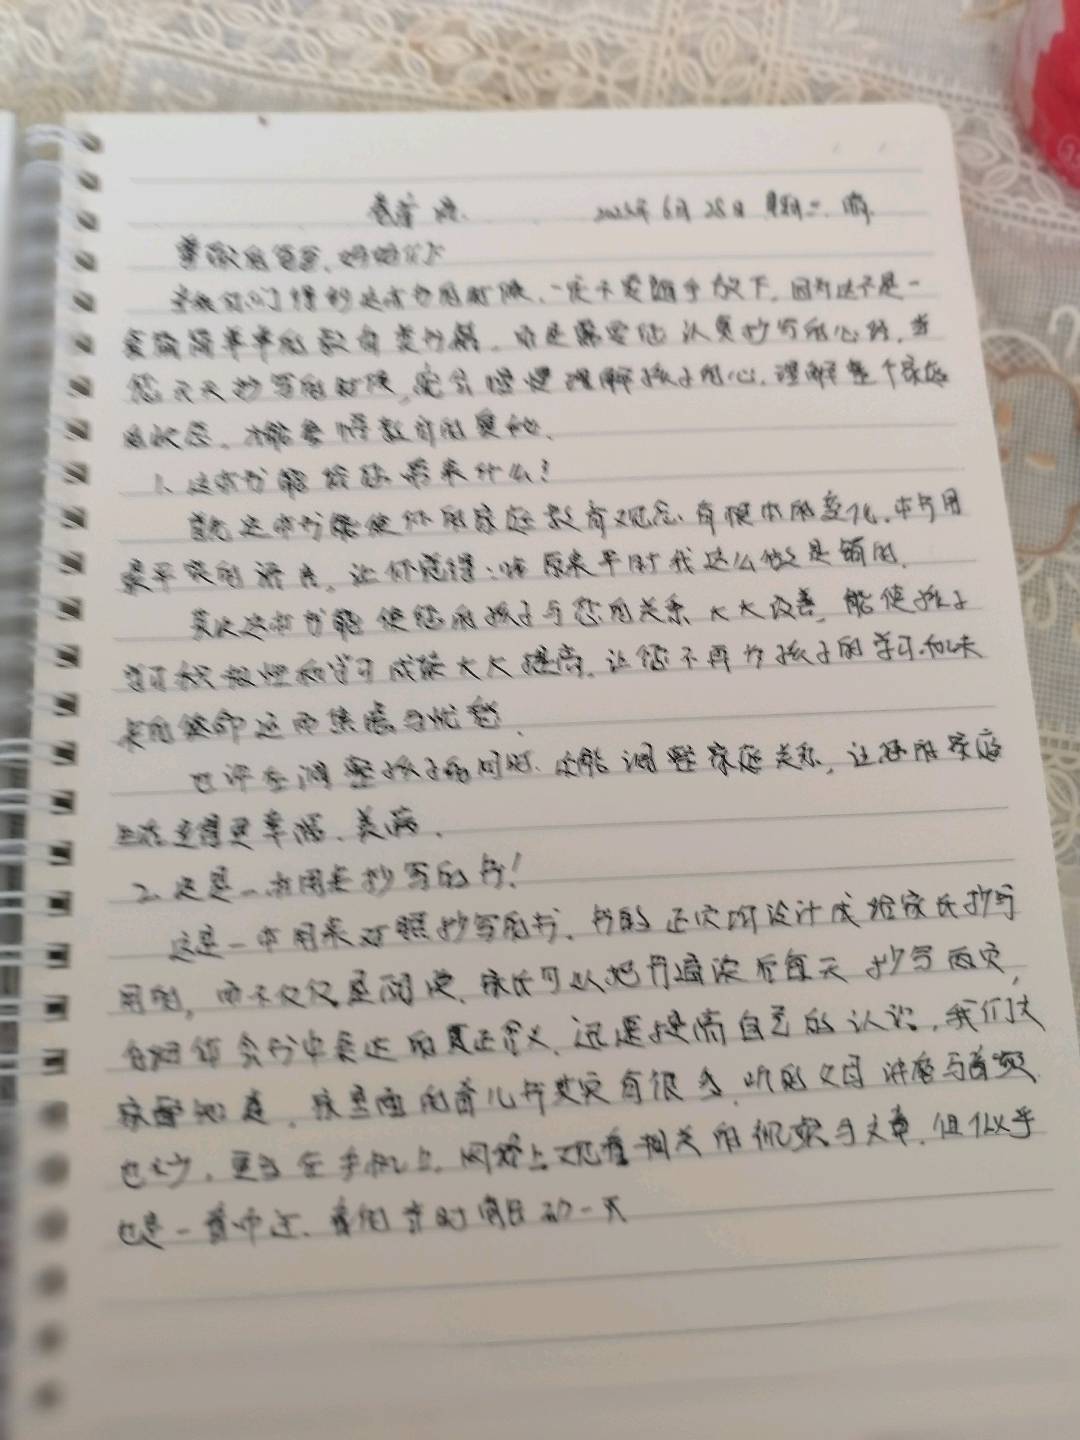 2023年6月28日 星期三
尊敬的爸爸、妈妈们
当我们们得到这本书的时候,一定不要随手放下,因为这不是一
套简简单单的教育类书籍,而是需要您认真抄写的心经,当
您天天抄写的时候,您会慢慢理解孩子的心,理解整个家庭
的状态,才能懂得教育的奥秘。
1、这本书能给您带来什么?
首先这本书能使你的家庭教育观念有根本的变化,本书用
最平淡的语言,让你觉得:哦原来平时我这么做是错的。
其次这本书能使您的孩子与您的关系大大改善,能使孩子
学习积极性和学习成绩大大提高,让您不再为孩子的学习和未
来的使命还而焦虑与忧愁。
也许在调整孩子的同时,次能调整家庭关系,让您的家庭
生活变得更幸福、美满。
2、这是一本用来抄写的书!
这是一本用来对照抄写的书,书的
用的,而不仅仅是阅读,家长可以把书通读后每天抄写两页,
书中表达的真正含义,迅速提高自己的认识,我们大
家都知道,家里面的育儿书其实有很多,听的
也不少,更多在手机上、网络上观看相关的视频与文章,但似乎
也是一看而过、看的当时